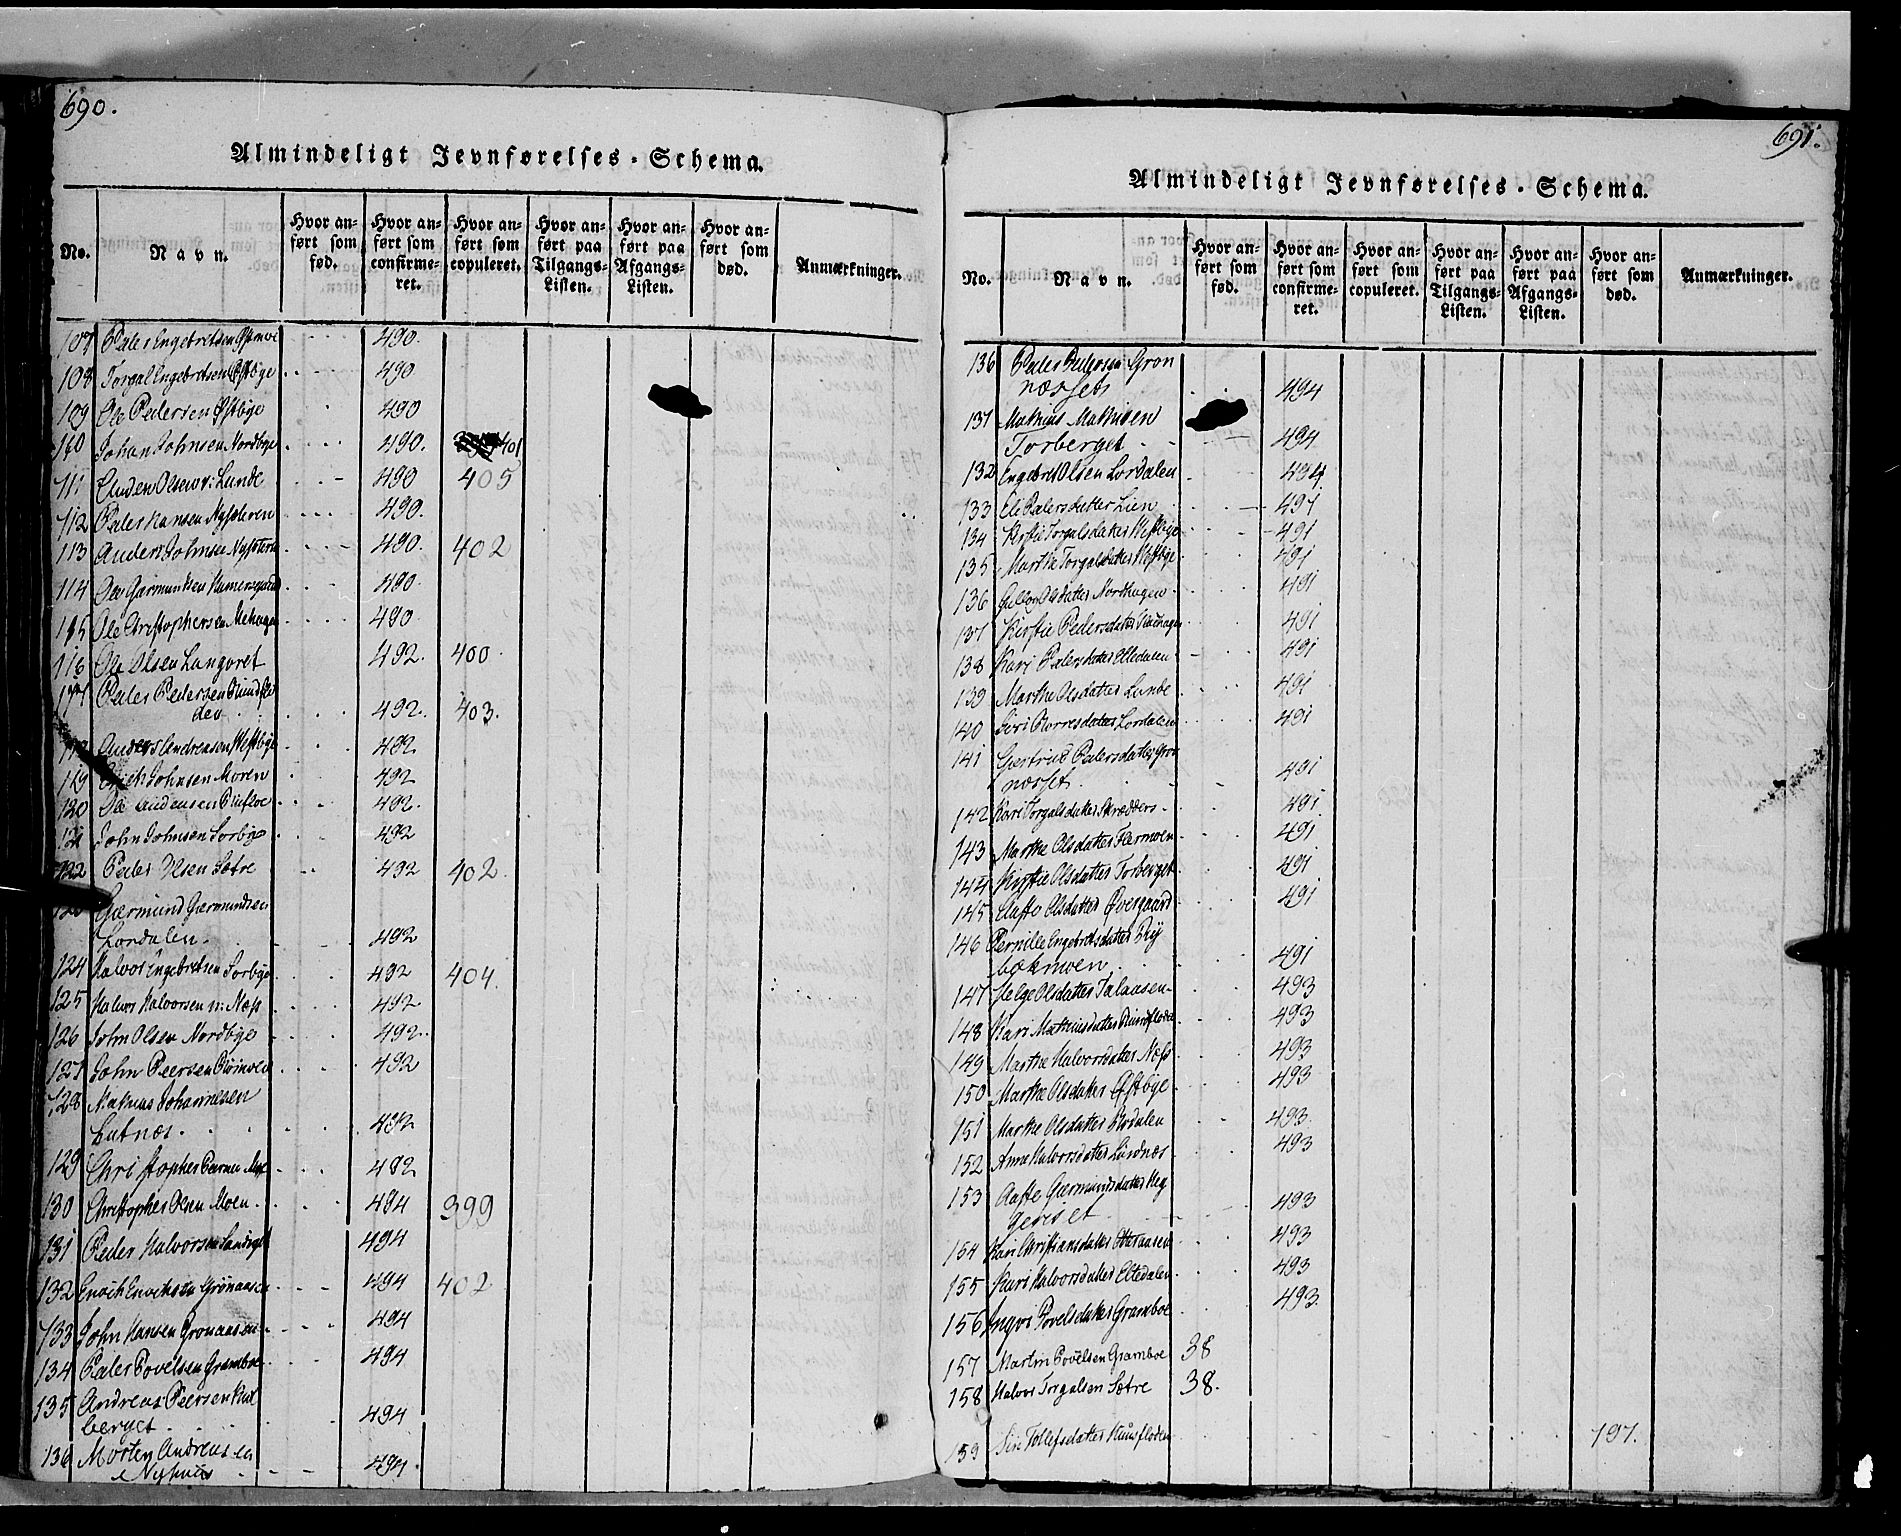 690.
Almindeligt Jevnførelses-Schema.
No. Navn. Hvor anført som fød. Hvor anført som confirmeret. Hvor anført som copuleret. Hvor anført paa Tilgangs-Listen. Hvor anført paa Afgangs-Listen. Hvor anført som død. Anmærkninger.
107 Peder Engebretsen 490.
108 Torgal Engebretsen Østbye 490
109 Ole Pedersen Østbye 490
110 Johan Johnsen Nordbye 490. 401
111 Auden Olsen n: Lunde 490 405
112 Peder Hansen Nysæteren 490.
113 Anders Johnsen Nysætern 490. 402
114 Ole Giermundsen 490.
115 Ole Christophersen 490
116 Ole Olsen Langoret 492. 400
117 Peder Pedersen
492. 403.
118 Anders Andreasen Westbye 492
119 Erich Johnsen Moren 492
120 Ole Audensen 492.
121 John Johnsen Sorbye 492
122 Peder Olsen Sætre 492 402.
123 Giermund Giermundsen
Lordalen 492
124 Halvor Engebretsen Sorbye 492 404.
125 Halvor Halvorsen n: Næss 492
126 John Olsen Nordbye 492.
127 John Peersen 492
128 Mathias Johannesen
Lutnæs. 492
129 Christopher 492
130 Christopher Olsen Moen 494 399
131 Peder Halvorsen 494
132 Enoch Enochsen Grønaasen 494 402
133 John Hansen Gronaasen 494
134 Peder Povelsen Gramboe 494
135 Andreas Peersen
berget 494
136 Morten Andreasen
Nyhuus 494.
691.
Almindeligt Jevnførelses-Schema.
No. Navn. Hvor anført som fød. Hvor anført som confirmeret. Hvor anført som copuleret. Hvor anført paa Tilgangs-Listen. Hvor anført paa Afgangs-Listen. Hvor anført som død. Anmærkninger.
136 Peder Pedersen Gron
næsset 494
131 Mathias Mathisen
Torberget 494
132 Engebret Olsen Lordalen 494
133 Eli Pedersdatter Lien 491
134 Kirstie Torgalsdatter Westbye 491
135 Martha Torgalsdatter Westbye 491
136 Olsdatter Nordhagen 491
137 Kirstie Pedersdatter 491
138 Kari Pedersdatter Eltedalen 491
139 Marthe Olsdatter Lunde 491
140 Siri Borresdatter Lordalen 491
141 Giertrud Pedersdatter Gron
næsset. 491
142 Kari Torgalsdatter Skrædders 491
143 Marthe Olsdatter Flermoen 491
144 Kirstie Olsdatter Torberget 491
145 Aaste Olsdatter Øvergaard 491
146 Pernille Engebretsdatter Ry
bækmoen 491
147 Helge Olsdatter 493
148 Kari Mathiusdatter 493
149 Marthe Halvorsdatter Næss 493
150 Marthe Olsdatter Østbye 493
151 Marthe Olsdatter 493.
152 Anne Halvorsdatter 493
153 Aaste Giermundsdatter Heg
geriset 493
154 Kari Christiansdatter 493
155 Kari Halvorsdatter Eltedalen 493
156 Ingri Povelsdatter Gramboe 493.
157 Martin Povelsen Gramboe 38
158 Halvor Torgalsen Sætre 38.
159 Siri Tollefsdatter 197.